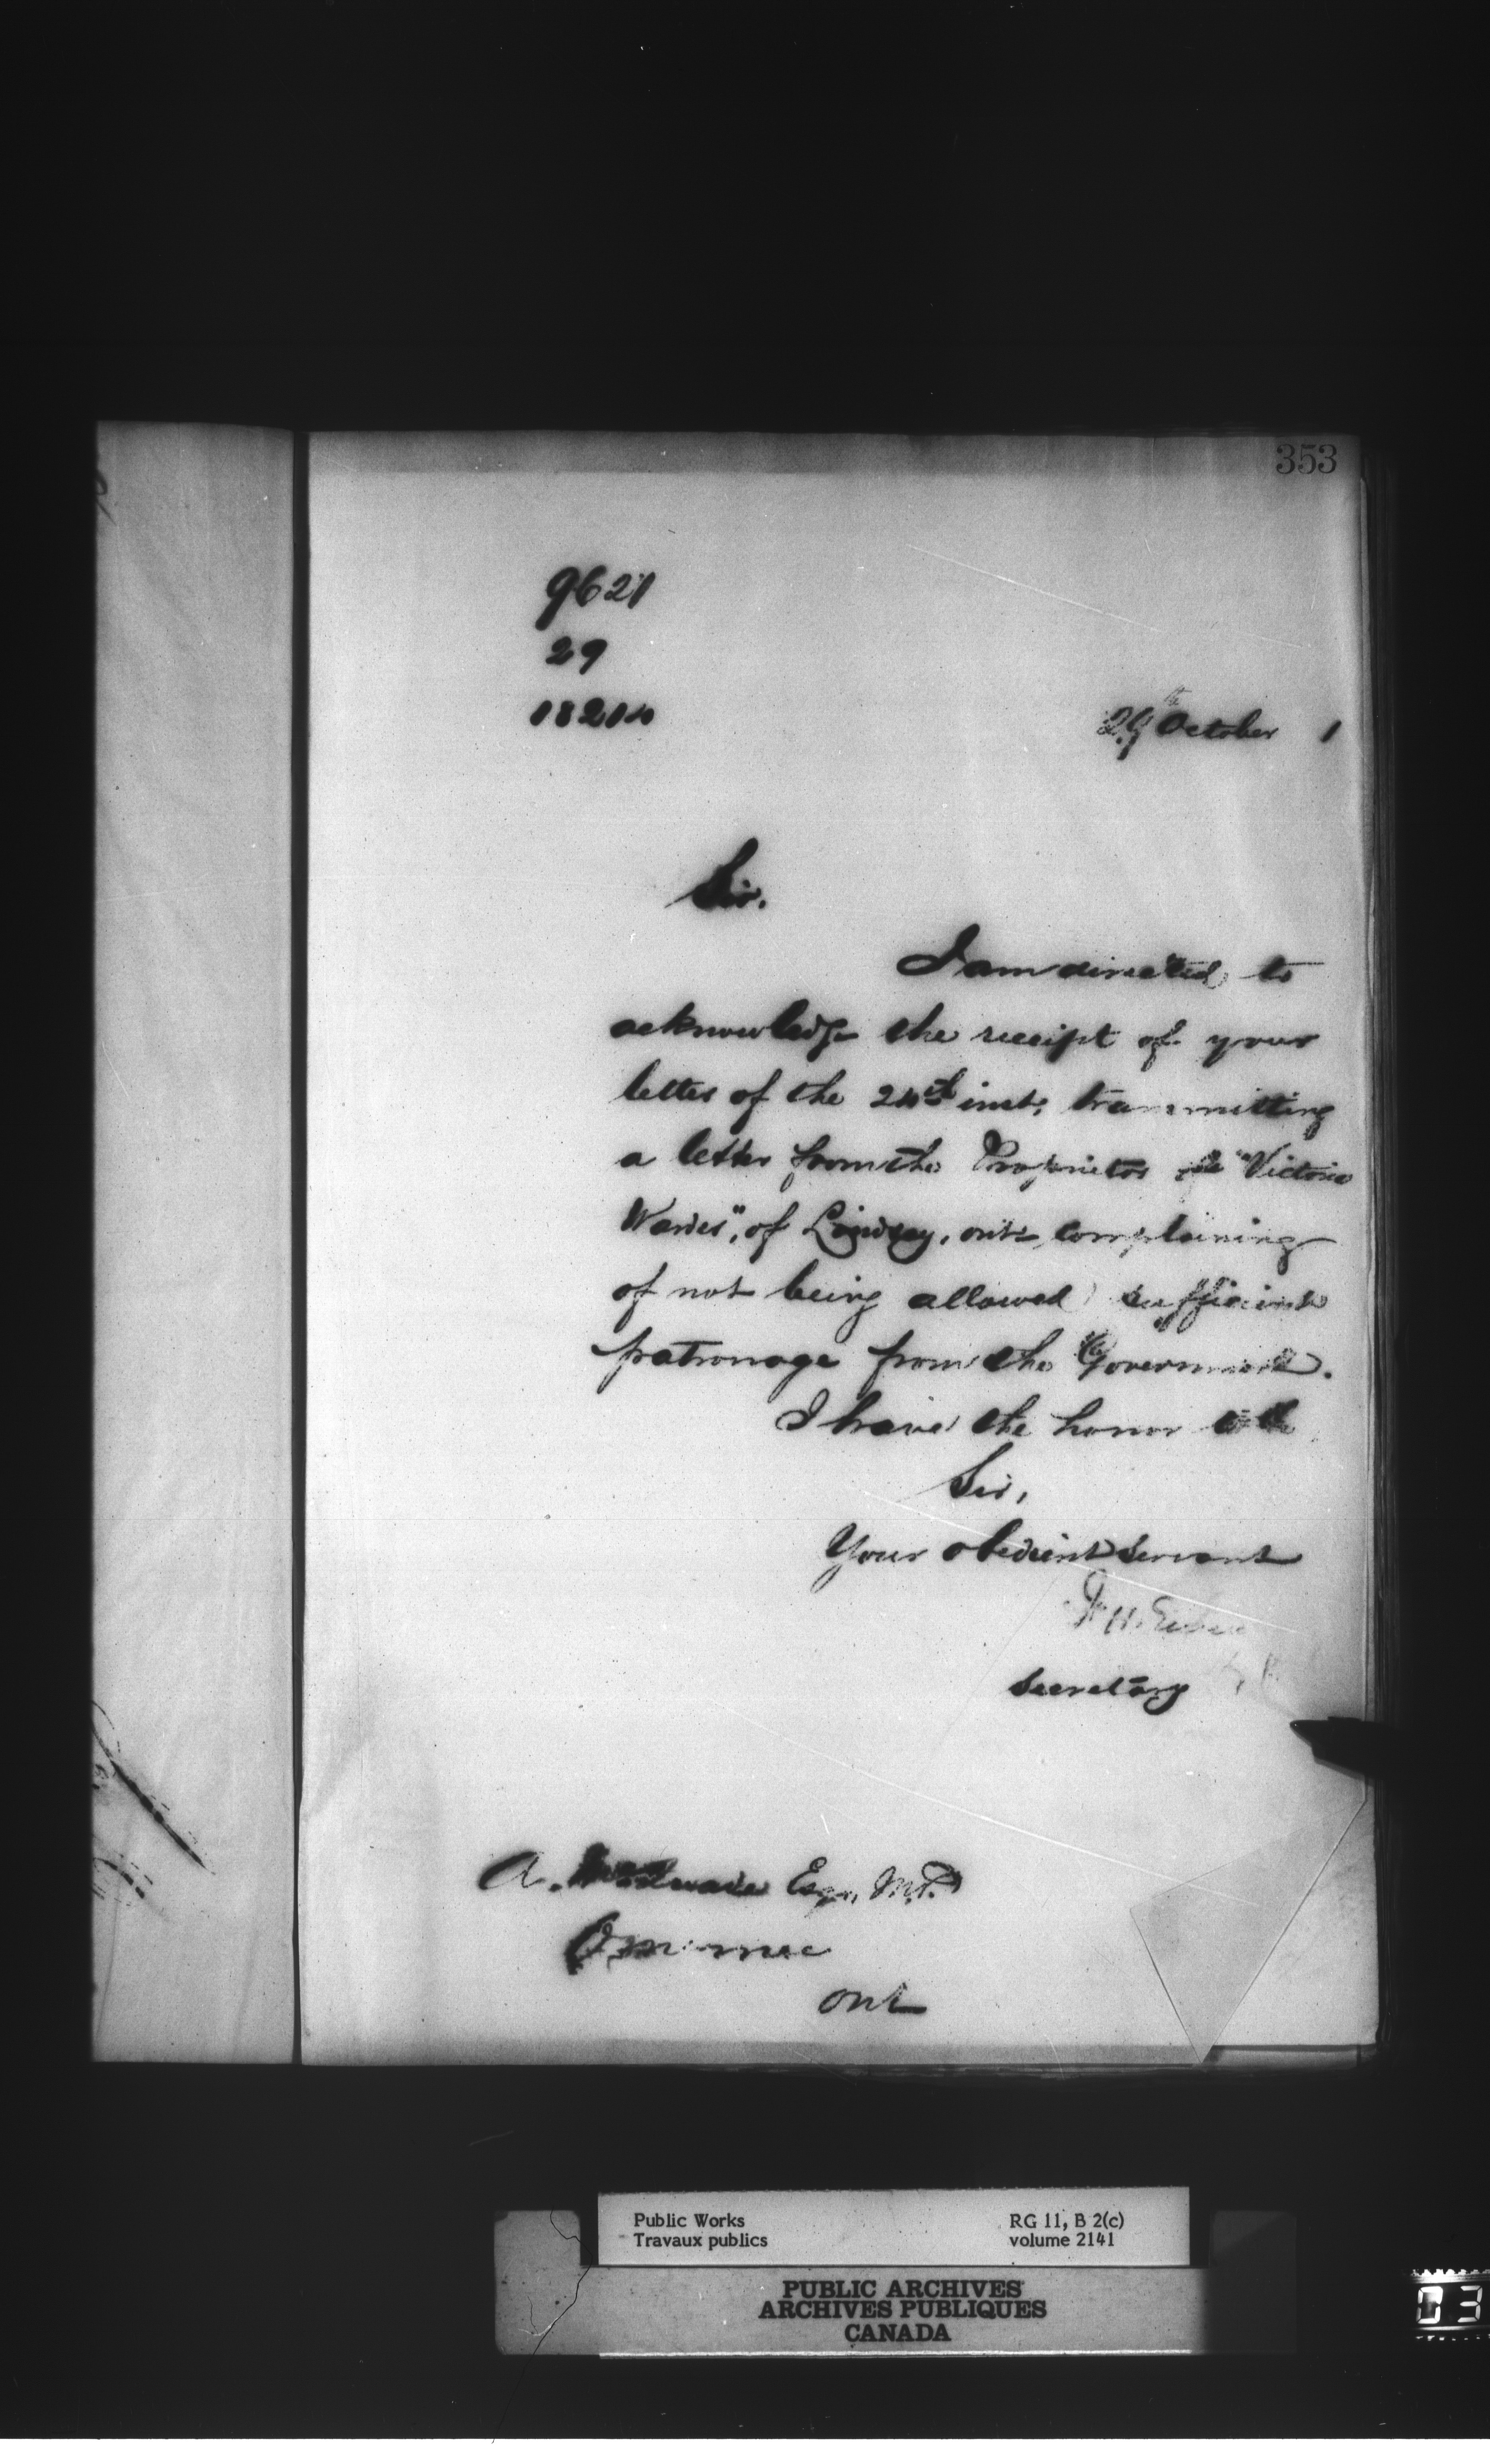 353
9621
29
18214
29th October 1
Sir.
I am directed to
acknowledge the receipt of your
letter of the 24th inst, transmitting
a letter from the Proprietor of the "Victoria
Warder", of Lindsay, Ont, complaining
of not being allowed sufficient
patronage from the Government.
I have the honor to be
Sir,
Your obedient servant
F. H. Ennis
Secretary
A. Esqr, M.P.
Omemee
Ont
Public Works
Travaux publics
RG 11, B 2(c)
volume 2141
PUBLIC ARCHIVES
ARCHIVES PUBLIQUES
CANADA
03